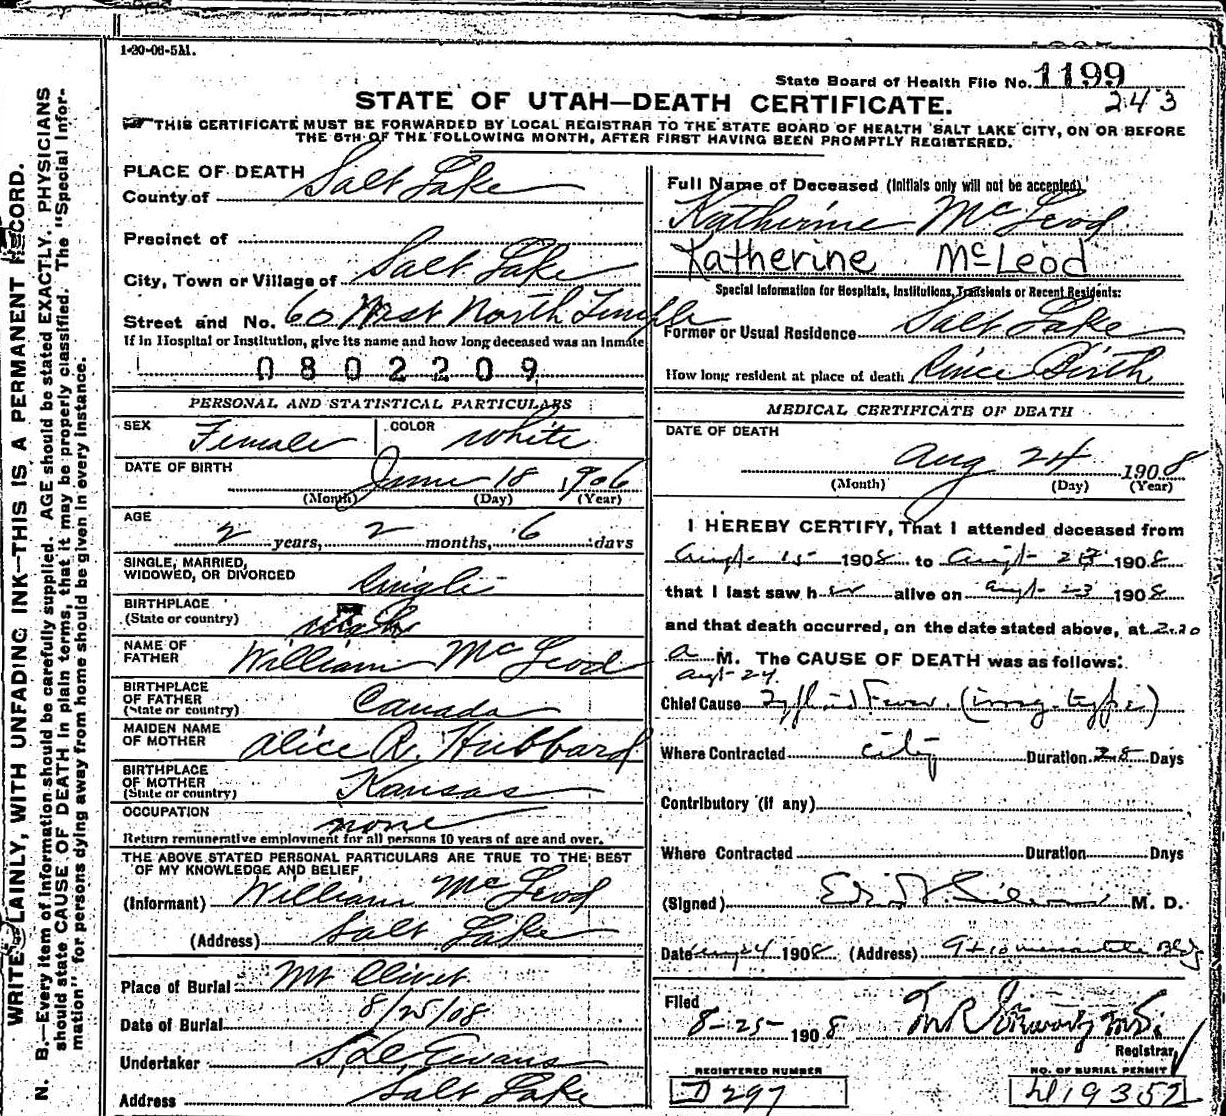 1-20-06-5M.
State Board of Health File No. 1199
243
STATE OF UTAH—DEATH CERTIFICATE.
THIS CERTIFICATE MUST BE FORWARDED BY LOCAL REGISTRAR TO THE STATE BOARD OF HEALTH SALT LAKE CITY, ON OR BEFORE
THE 5TH OF THE FOLLOWING MONTH, AFTER FIRST HAVING BEEN PROMPTLY REGISTERED.
WRITE PLAINLY, WITH UNFADING INK—THIS IS A PERMANENT RECORD.
N. B.—Every item of information should be carefully supplied. AGE should be stated EXACTLY. PHYSICIANS
should state CAUSE OF DEATH in plain terms, that it may be properly classified. The "Special Infor-
mation" for persons dying away from home should be given in every instance.
PLACE OF DEATH
County of Salt Lake
Precinct of
City, Town or Village of Salt Lake
Street and No. 60 West North Temple
If in Hospital or Institution, give its name and how long deceased was an inmate
0802209
PERSONAL AND STATISTICAL PARTICULARS
SEX Female COLOR White
DATE OF BIRTH June 18 1906
(Month) (Day) (Year)
AGE
2 years, 2 months, 6 days
SINGLE, MARRIED,
WIDOWED, OR DIVORCED Single
BIRTHPLACE
(State or country)
NAME OF
FATHER William McLeod
BIRTHPLACE
OF FATHER
(State or country) Canada
MAIDEN NAME
OF MOTHER Alice R. Hubbard
BIRTHPLACE
OF MOTHER
(State or country) Kansas
OCCUPATION none
Return remunerative employment for all persons 10 years of age and over.
THE ABOVE STATED PERSONAL PARTICULARS ARE TRUE TO THE BEST
OF MY KNOWLEDGE AND BELIEF,
(Informant) William McLeod
(Address) Salt Lake
Place of Burial Mt Olivet
Date of Burial 8/25/08
Undertaker Evans
Address Salt Lake
Full Name of Deceased (Initials only will not be accepted)
Katherine McLeod
Katherine McLeod
Special Information for Hospitals, Institutions, Transients or Recent Residents:
Former or Usual Residence Salt Lake
How long resident at place of death Since Birth
MEDICAL CERTIFICATE OF DEATH
DATE OF DEATH
Aug 24 1908
(Month) (Day) (Year)
I HEREBY CERTIFY, That I attended deceased from
Augt 15 1908 to Augt 23 1908
that I last saw her alive on Augt 23 1908
and that death occurred, on the date stated above, at 2.20
a M. The CAUSE OF DEATH was as follows:
Augt 24
Chief Cause Typhoid Fever.
Where Contracted City Duration 28 Days
Contributory (if any)
Where Contracted Duration Days
(Signed) M. D.
Date Aug 24 1908 (Address) Mercantile Bldg
Filed
8-25- 1908
Registrar
REGISTERED NUMBER
D297
NO. OF BURIAL PERMIT
19352